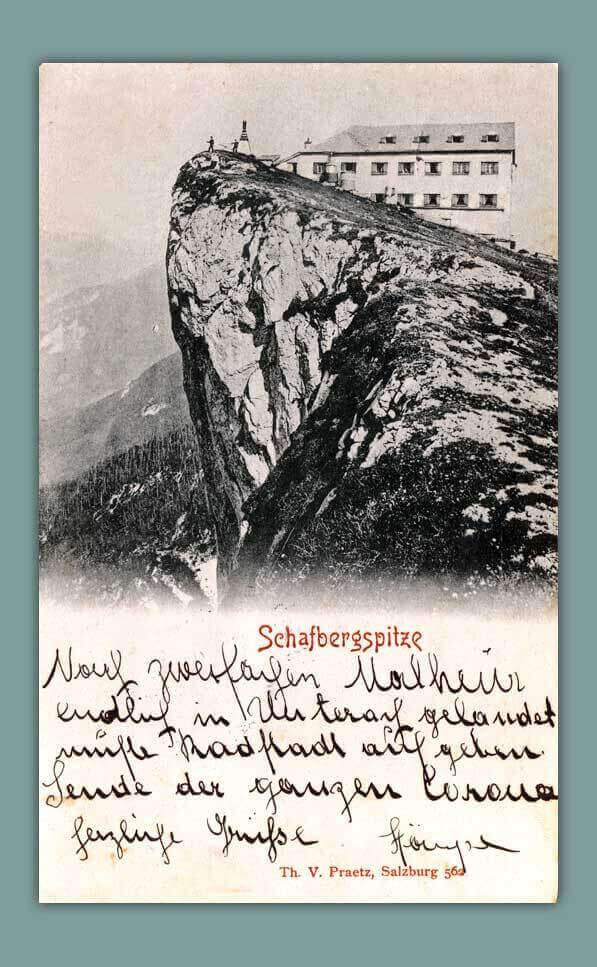 Schafbergspitze
Nach zweifachen Malheur
endlich in Unterach gelandet
mußte Radstadt aufgeben.
Sende der ganzen Corona
herzliche Grüße
Th. V. Praetz, Salzburg 562